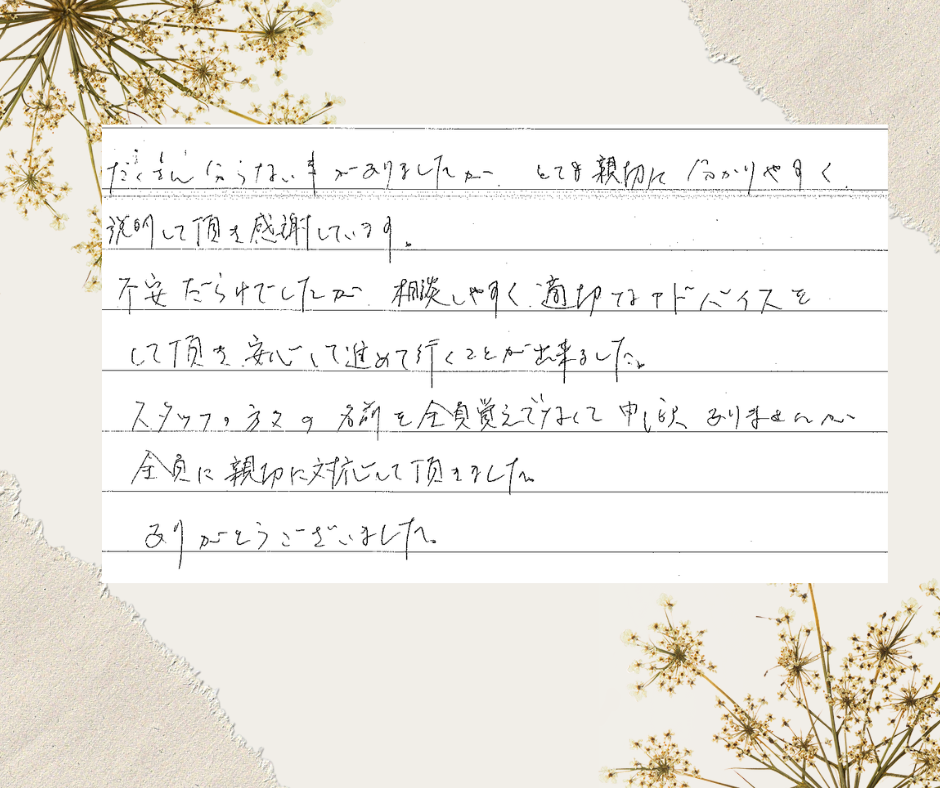 たくさん分らない事がありましたが、とても親切に分かりやすく
説明して頂き感謝しています。
不安だらけでしたが、相談しやすく適切なアドバイスを
して頂き、安心して進めて行くことが出来ました。
スタッフの方々の名前を全員覚えてなくて申し訳ありませんが
全員に親切に対応して頂きました。
ありがとうございました。